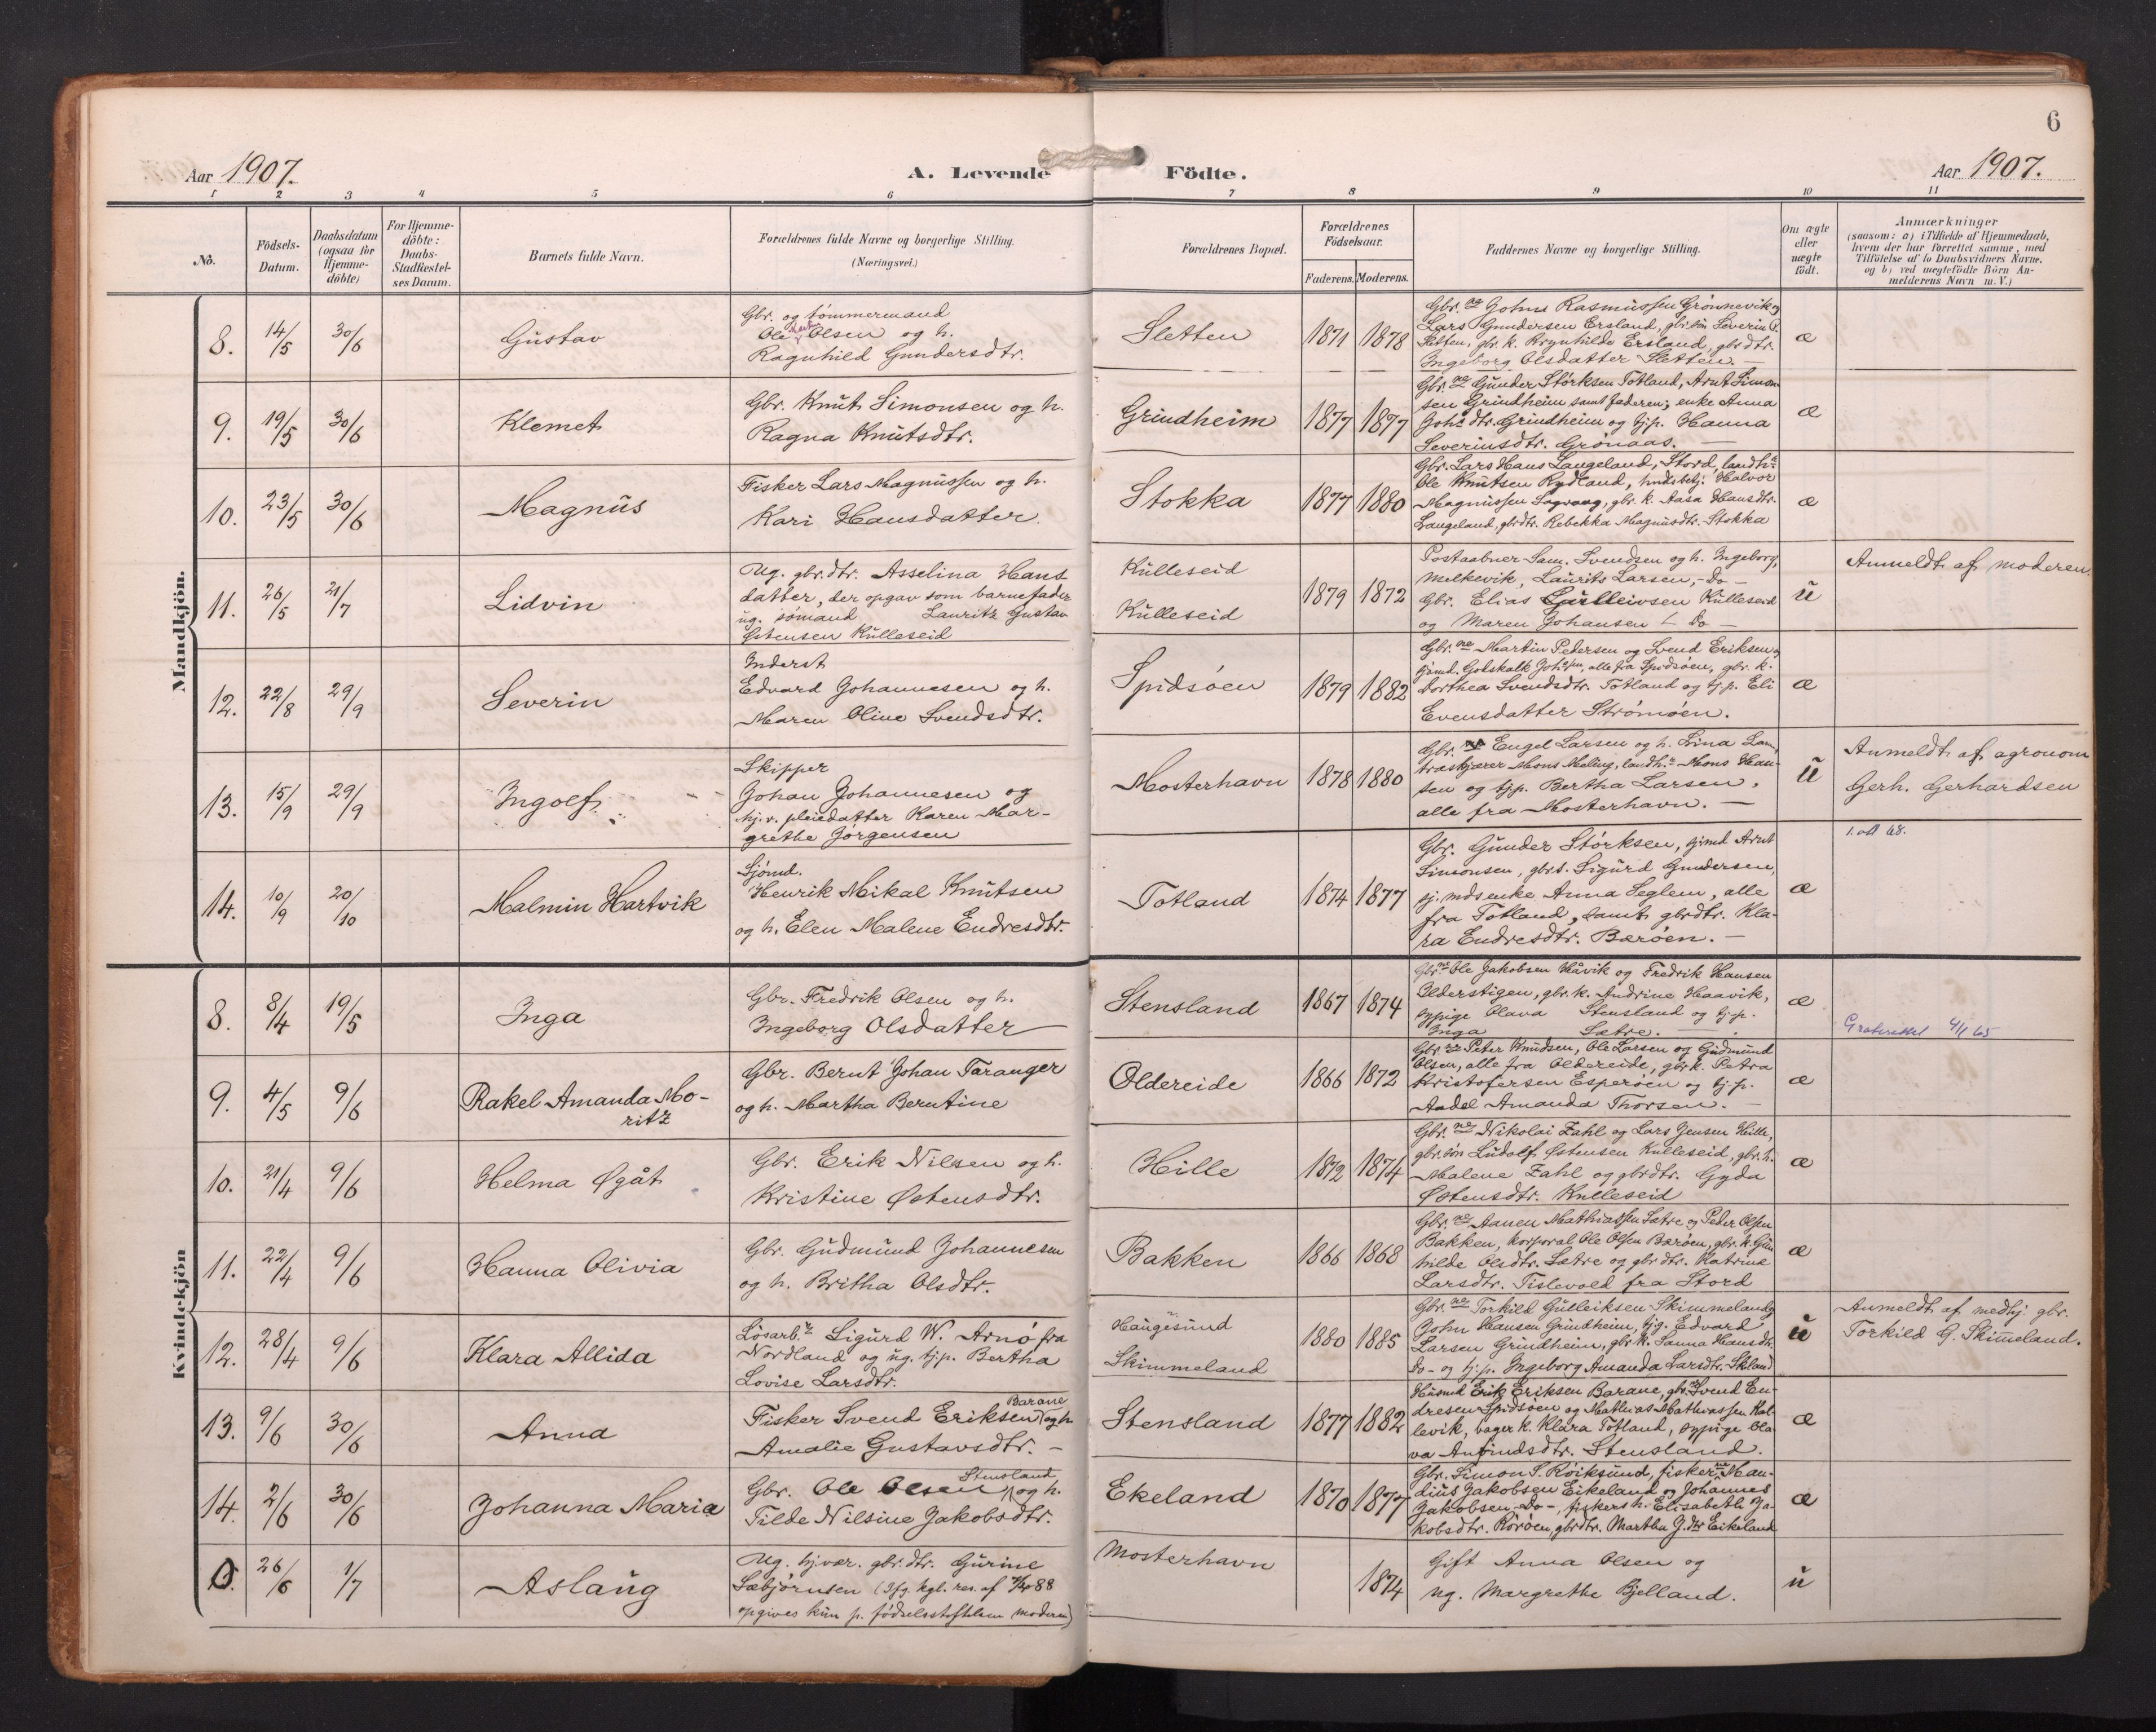 6
Aar 1907.
A. Levende Födte.
Aar 1907.
1 2 3 4 5 6 7 8 9 10 11
No.
Födsels-
Datum.
Daabsdatum
(ogsaa for
Hjemme-
döbte)
For Hjemme-
döbte:
Daabs-
Stadfæstel-
ses Datum.
Barnets fulde Navn.
Forældrenes fulde Navne og borgerlige Stilling.
(Næringsvei.)
Forældrenes Bopæl.
Forældrenes
Födselsaar.
Faderens. Moderens.
Faddernes Navne og borgerlige Stilling.
Om ægte
eller
uægte
födt.
Anmærkninger
(saasom: a) i Tilfælde af Hjemmedaab,
hvem der har forrettet samme, med
Tilföielse af to Daabsvidners Navne.
og b) ved uægtefödte Börn An-
melderens Navn m. V.)
Mandkjön.
8. 14/5 30/6 Gustav
Gbr. og tømmermand
Ole Olsen og h.
Ragnhild Gundersdtr.
Sletten 1871 1878
Gbr.ne Johns Rasmussen Grønnevik og
Lars Gundersen Ersland, gbr.søn Severin P.
Sletten, gbr. k. Brynhilde Ersland, gbr.dtr.
Ingeborg Olsdatter Sletten. —
æ
9. 19/5 30/6 Klemet
Gbr. Knut Simonsen og h.
Ragna Knutsdtr.
Grindheim 1877 1877
Gbr.ne Gunder Størksen Totland, Arnt Simon-
sen Grindheim samt faderen; enke Anna
Johs dtr. Grindheim og tj.p. Hanna
Severinsdtr. Grønaas. —
æ
10. 23/5 30/6 Magnus
Fisker Lars Magnussen og h.
Kari Hansdatter.
Stokka 1877 1880
Gbr. Lars Hans Langeland, Stord, landh.
Ole Knutsen Rydland, Halvor
Magnussen Sagvaag, gbr. k. Aasa Hansdtr.
Langeland, gbrdtr. Rebekka Magnusdtr. Stokka
æ
11. 26/5 21/7 Lidvin
Ug. gbr.dtr. Asselina Hans-
datter, der opgav som barnefader
ug. sømand Lauritz Gustav
Østensen Kulleseid
Kulleseid
Kulleseid
1879 1872
Postaabner Sam. Svendsen og h. Ingeborg,
Melkevik, Laurits Larsen, - Do -
Gbr. Elias Kulleseid
og Maren Johansen - Do -
u
Anmeldt af moderen.
12. 22/8 29/9 Severin
Inderst
Edvard Johannesen og h.
Maren Oline Svendsdtr.
Spidsøen 1879 1882
Gbr.ne Martin Pedersen og Svend Eriksen og
Godskalk Johssen, alle fra Spidsøen, gbr. k.
Dorthea Svendsdtr. Totland og tj.p. Eli
Evensdatter Strømøen.
æ
13. 15/9 29/9 Ingolf
Skipper
Johan Johannesen og
hj.v. pleiedatter Karen Mar-
grethe Jørgensen
Mosterhavn 1878 1880
Gbr. Engel Larsen og h. Lina Lam,
Mons Meling, landh. Mons Han-
sen og tj.p. Bertha Larsen,
alle fra Mosterhavn. —
u
Anmeldt af agronom
Gerh. Gerhardsen
1. att 68.
14. 10/9 20/10 Malmin Hartvik
Sjømd.
Henrik Mikal Knutsen
og h. Elen Malene Endresdtr.
Totland 1874 1877
Gbr. Gunder Størksen, sjmd Arnt
Simonsen, gbrs. Sigurd Gundersen,
sj.mdsenke Anna Seglem, alle
fra Totland, samt gbrdtr. Kla-
ra Endresdtr. Bærøen. —
æ
Kvindekjön
8. 8/4 19/5 Inga
Gbr. Fredrik Olsen og h.
Ingeborg Olsdatter
Stensland 1867 1874
Gbr.ne Ole Jakobsen Håvik og Fredrik Hansen
Olderstigen, gbr. k. Andrine Haavik,
sypige Olava Stensland og tj.p.
Inga Sætre. —
æ
4/1 65
9. 4/5 9/6 Rakel Amanda Mo-
ritz
Gbr. Bernt Johan Taranger
og h. Martha Berntine
Oldereide 1866 1872
Gbr.ne Peter Knudsen, Ole Larsen og Gudmund
Olsen, alle fra Oldereide, gbr k. Petra
Kristofersen Esperøen og tj.p.
Aadel Amanda Thorsen. —
æ
10. 21/4 9/6 Helma Øgåt
Gbr. Erik Nilsen og h.
Kristine Østensdtr.
Hille 1872 1874
Gbr.ne Nikolai Zahl og Lars Jensen Hille,
gbr.søn Ludolf Østensen Kulleseid, gbr. h.
Malene Zahl og gbrdtr. Gyda
Østensdtr. Kulleseid
æ
11. 22/4 9/6 Hanna Olivia
Gbr. Gudmund Johannesen
og h. Britha Olsdtr.
Bakken 1866 1868
Gbr.ne Aanen Mathiassen Sætre og Peder Olsen
Bakken, korporal Ole Olsen Bærøen, gbr. k. Gun-
hilde Olsdtr. Sætre og gbrdtr. Katrine
Larsdtr. Tislevold fra Stord
æ
12. 28/4 9/6 Klara Allida
Løsarb.r Sigurd W. Arnø fra
Nordland og ug. tj.p. Bertha
Lovise Larsdtr.
Haugesund
Skimmeland
1880 1885
Gbr.ne Torkild Gulleiksen Skimmeland og
John Hansen Grindheim, tjg. Edvard
Larsen Grindheim, gbr. k. Sanna Hansdtr.
Do - og tj.p. Ingeborg Amanda Larsdtr. Skland
u
Anmeldt af medhj. gbr.
Torkild G. Skimeland.
13. 9/6 30/6 Anna
Barane
Fisker Svend Eriksen og h
Amalie Gustavsdtr. -
Stensland 1877 1882
Husmd Erik Eriksen Barane, gbr.ne Svend En-
dresen Spidsøen og Mathias Mathiassen Kal-
levik, bager k. Klara Totland, sypige Ola-
va Anfindsdtr. Stensland.
æ
14. 2/6 30/6 Johanna Maria
Stensland
Gbr. Ole Olsen og h.
Tilde Nilsine Jakobsdtr.
Ekeland 1870 1877
Gbr. Simon S. Røiksund, fisker.ne Man-
dius Jakobsen Eikeland og Johannes
Jakobsen - Do -, fiskers h. Elisabeth Ja-
kobsdtr. Rørøen, gbrdtr. Martha J.dtr Eikeland
æ
26/6 1/7 Aslaug
Ug. hjvær. gbr.dtr. Gurine
Sæbjørnsen (Ifg. kgl. res. af 88
opgives kun p. fødselsstiftelsen moderen)
Mosterhavn
1874
Gift Anna Olsen og
ug. Margrethe Bjelland.
u